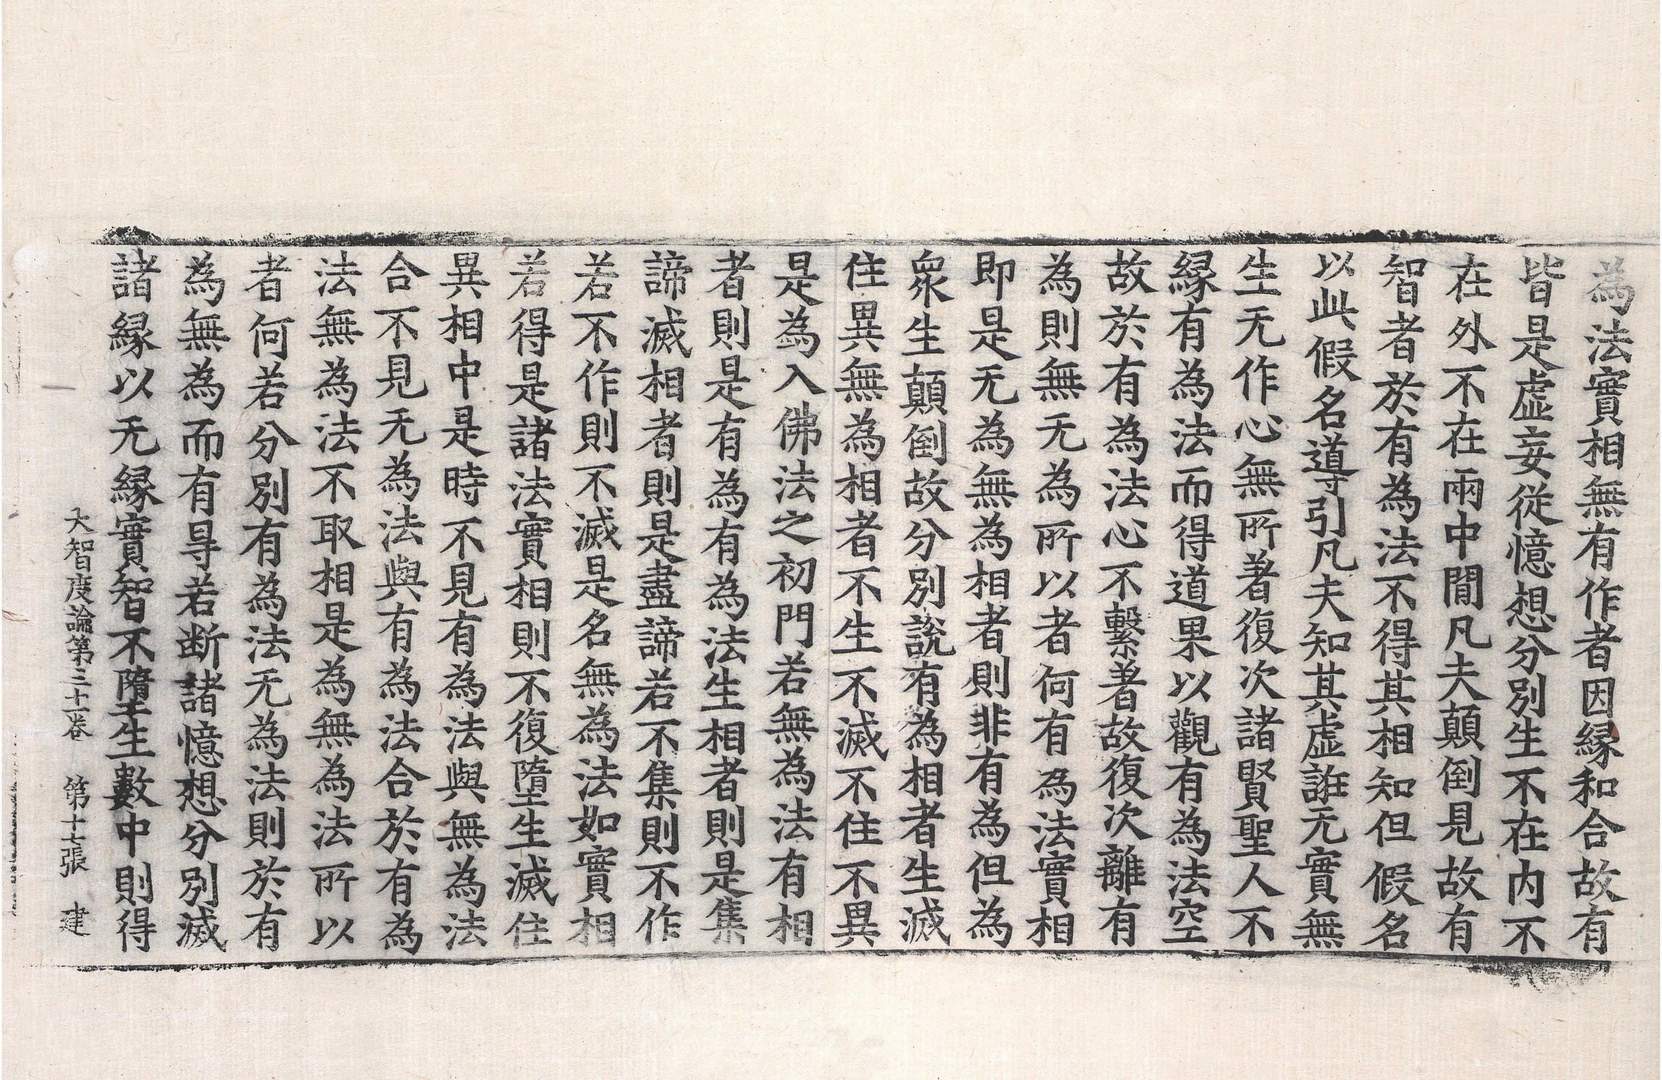 為法實相無有作者因縁和合故有
皆是虛妄従憶想分別生不在内不
在外不在兩中閒凡夫顛倒見故有
智者於有為法不得其相知但假名
以此假名導引凡夫知其虛誑无實無
生无作心無所著復次諸賢聖人不
縁有為法而得道果以觀有為法空
故於有為法心不繫著故復次離有
為則無无為所以者何有為法實相
即是无為無為相者則非有為但為
衆生顛倒故分別說有為相者生滅
住異無為相者不生不滅不住不異
是為入佛法之初門若無為法有相
者則是有為有為法生相者則是集
諦滅相者則是盡諦若不集則不作
若不作則不滅是名無為法如實相
若得是諸法實相則不復墮生滅住
異相中是時不見有為法與無為法
合不見无為法與有為法合於有為
法無為法不取相是為無為法所以
者何若分別有為法无為法則於有
為無為而有㝵若断諸憶想分別滅
諸縁以无縁實智不墮生數中則得
大智度論第三十一卷 第十七張 建